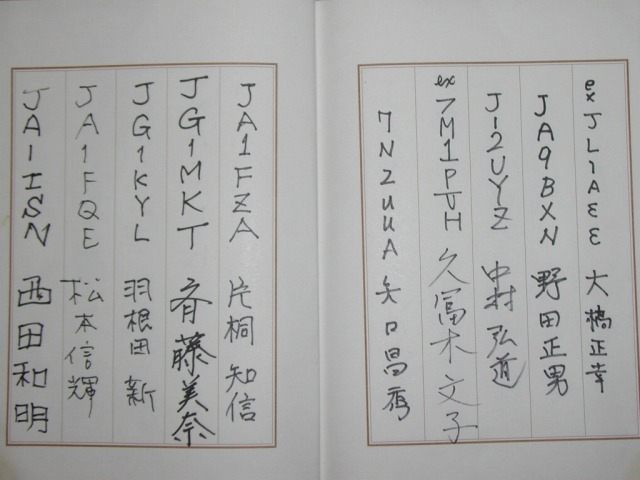 ex JL1AEE 大橋正幸
JA9BXN 野田正男
JI2UYZ 中村弘道
ex 7M1PTH 久富木文子
7N2UUA 矢口昌秀
JA1FZA 片桐知信
JG1MKT 斉藤美奈
JG1KYL 羽根田新
JA1FQE 松本信輝
JA1ISN 西田和明